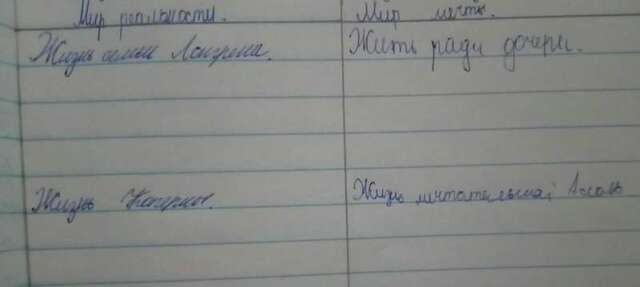 Мир реальности.
Мир мечты.
Жизнь семьи Лонгрена.
Жить ради дочери.
Жизнь Каперны.
Жизнь мечтательная; Ассоль